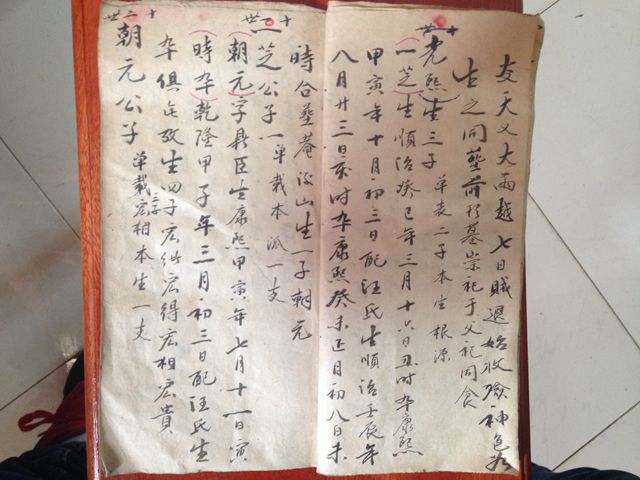 友天又大雨越七日賊退始收險神色如
生之同塟前形墓崇祀于父祀同食
十九世
光熙生三子 单表二子本生根源
一芝生順治癸巳年三月十六日丑时卒康熙
甲寅年十月初三日配汪氏生順治壬辰年
八月廿三日亥时卒康熙癸未正月初八日未
時合塟菴后山生一子朝元
廿世
一芝公子一单载本派一支
朝元字鼎臣生康熙甲寅年七月十一日寅
時卒乾隆甲子年三月初三日配汪氏生
卒俱乞攷生四子宏 宏得宏相宏貴
廿一世
朝元公子 单载三子宏相本生一支